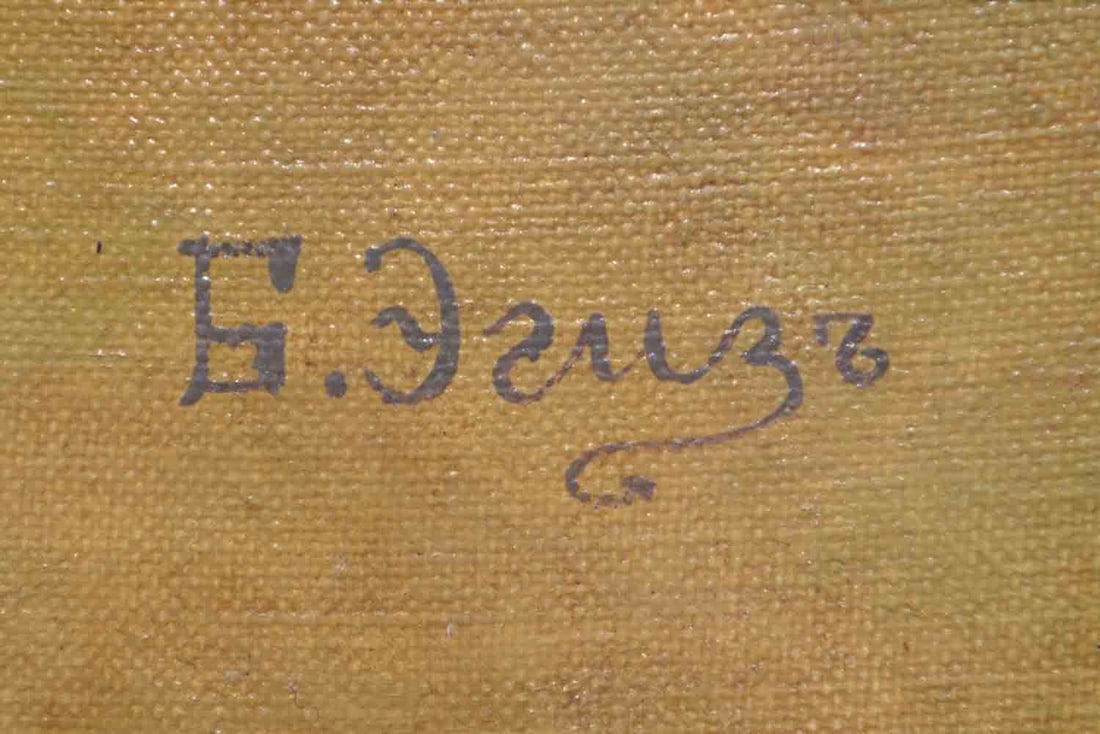 Б. Эгизъ